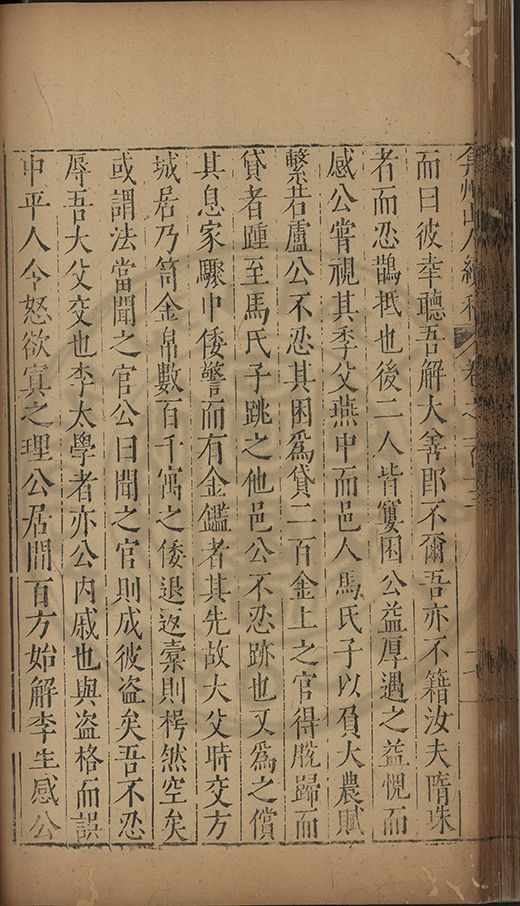 弇州山人續稿 卷之一百十三
而曰彼幸聽吾解大善郎不爾吾亦不籍汝夫隋珠
者而忍鵲抵也後二人皆窶困公益厚遇之益愧而
感公嘗視其季父燕中而邑人馬氏子以負大農賦
繫若盧公不忍其困為貸二百金上之官得脫歸而
貸者踵至馬氏子跳之他邑公不忍跡也又為之償
其息家驟中倭警而有金鑑者其先故大父時交方
城居乃笥金帛數百千寓之倭退返橐則楞然空矣
或謂法當聞之官公曰聞之官則成彼盜矣吾不忍
辱吾大父交也李太學者亦公內戚也與盜格而誤
中平人令怒欲寘之理公居間百方始解李生感公